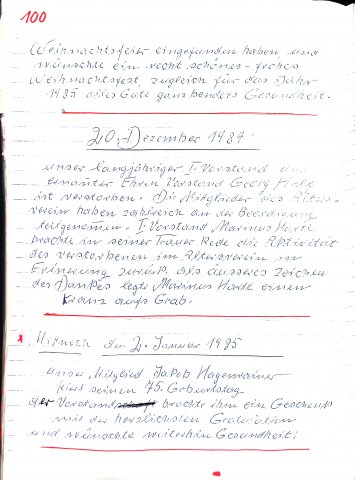 100
Weihnachtsfeier eingefunden haben und
wünschte ein recht schönes - frohes
Weihnachtsfest zugleich für das Jahr
1985 alles Gute ganz besonders Gesundheit.
20. Dezember 1984.
unser langjähriger I. Vorstand un
ernannter Ehren Vorstand Georg
ist verstorben. Die Mitglieder des Alters-
verein haben zahlreich an der Beerdigung
teilgenommen. I. Vorstand Marinus Hartl
brachte in seiner Trauer Rede die Aktivität
des verstorbenen im Altersverein in
Erinerung zurück als äusseres Zeichen
des Dankes legte Marinus Hartl einen
Kranz aufs Grab.
Mittwoch den 2. Januar 1985
unser Mitglied Jakob Hagenrainer
seinen 75. Geburtstag
der Vorstand brachte ihm ein Geschenk
mit der herzlichsten Gratulation
und wünschte weiterhin Gesundheit.